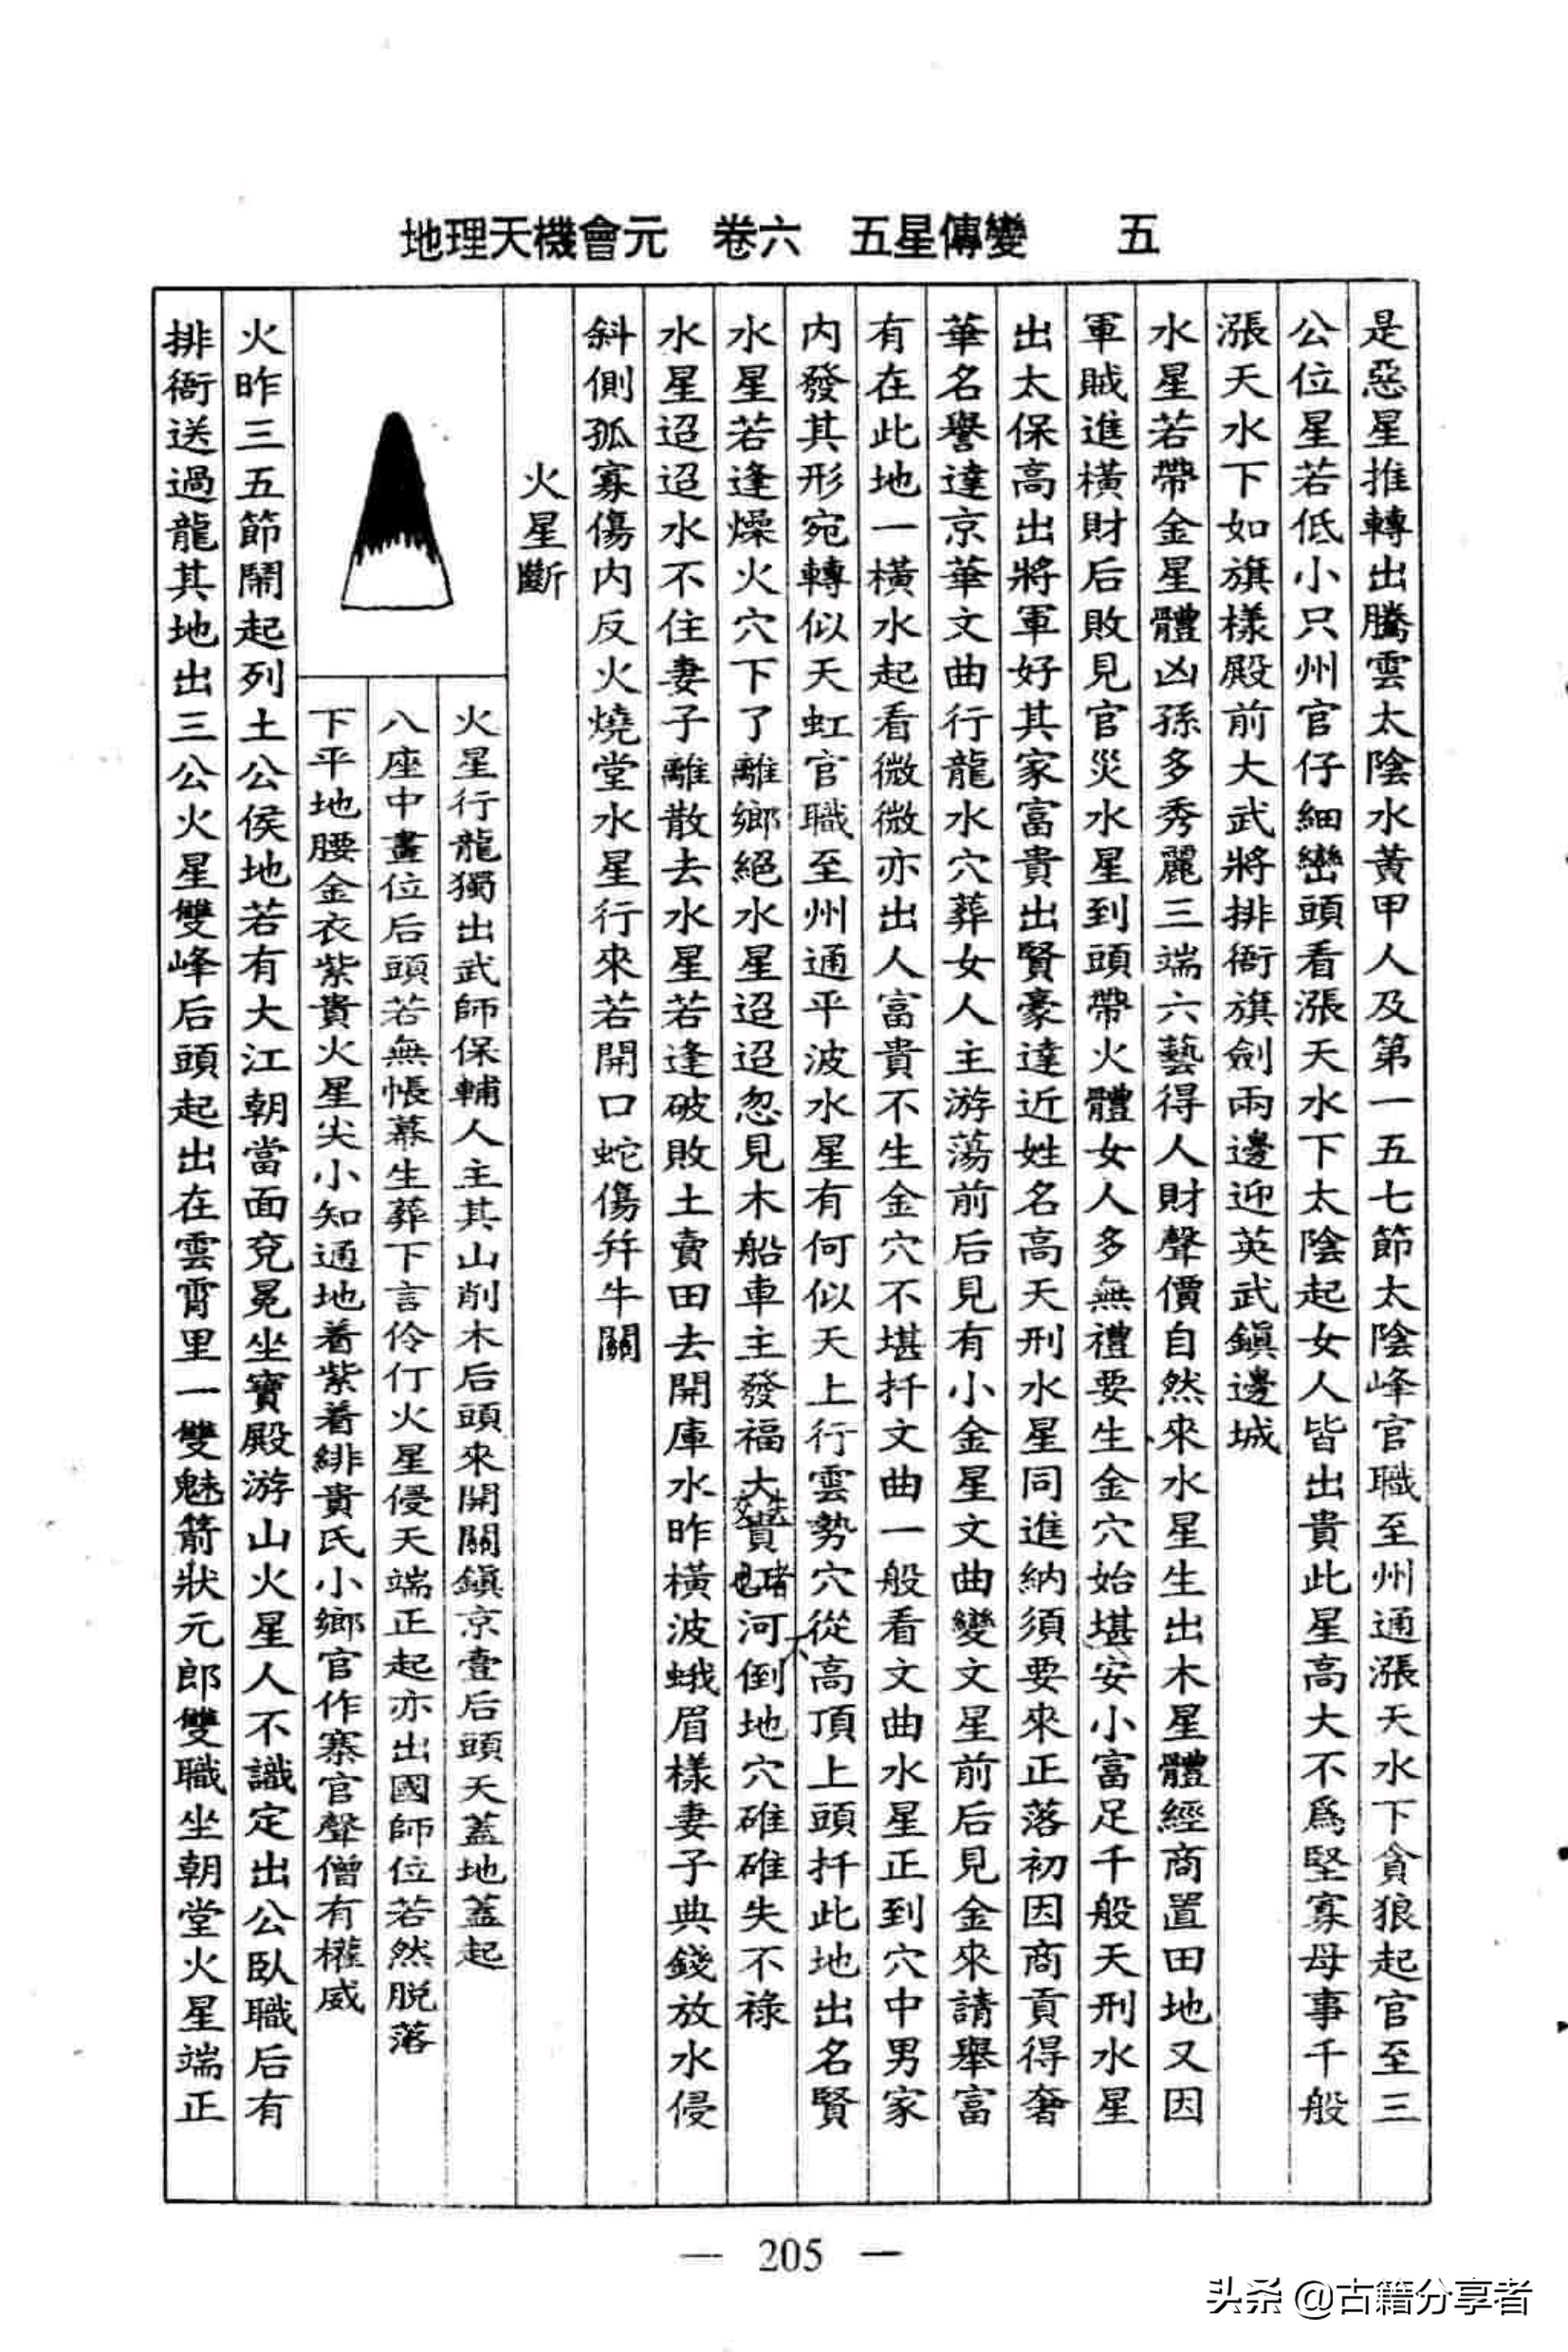 地理天機會元　卷六　五星傳變　五
是惡星推轉出騰雲太陰水黃甲人及第一五七節太陰峰官職至州通漲天水下貪狼起官至三
公位星若低小只州官仔細巒頭看漲天水下太陰起女人皆出貴此星高大不爲堅寡母事千般
漲天水下如旗樣殿前大武將排衙旗劍兩邊迎英武鎮邊城
水星若帶金星體凶孫多秀麗三端六藝得人財聲價自然來水星生出木星體經商置田地又因
軍賊進橫財后敗見官災水星到頭帶火體女人多無禮要生金穴始堪安小富足千般天刑水星
出太保高出將軍好其家富貴出賢豪達近姓名高天刑水星同進納須要來正落初因商貢得奢
華名譽達京華文曲行龍水穴葬女人主游蕩前后見有小金星文曲變文星前后見金來請舉富
有在此地一橫水起看微微亦出人富貴不生金穴不堪扦文曲一般看文曲水星正到穴中男家
内發其形宛轉似天虹官職至州通平波水星有何似天上行雲勢穴從高頂上頭扦此地出名賢
水星若逢燥火穴下了離鄉絕水星迢迢忽見木船車主發福大貴河倒地穴碓碓失不祿
水星迢迢水不住妻子離散去水星若逢破敗土賣田去開庫水昨橫波蛾眉樣妻子典錢放水侵
斜側孤寡傷内反火燒堂水星行來若開口蛇傷幷牛關
火星斷
火星行龍獨出武師保輔人主其山削木后頭來開關鎮京臺后頭天蓋地蓋起
八座中畫位后頭若無帳幕生葬下言伶仃火星侵天端正起亦出國師位若然脱落
下平地腰金衣紫貴火星尖小知通地着紫着緋貴氏小鄉官作寨官聲僧有權威
火昨三五節鬧起列土公侯地若有大江朝當面兗冕坐寶殿游山火星人不識定出公臥職后有
排衙送過龍其地出三公火星雙峰后頭起出在雲霄里一雙魅箭狀元郎雙職坐朝堂火星端正
— 205 —
头条 @古籍分享者